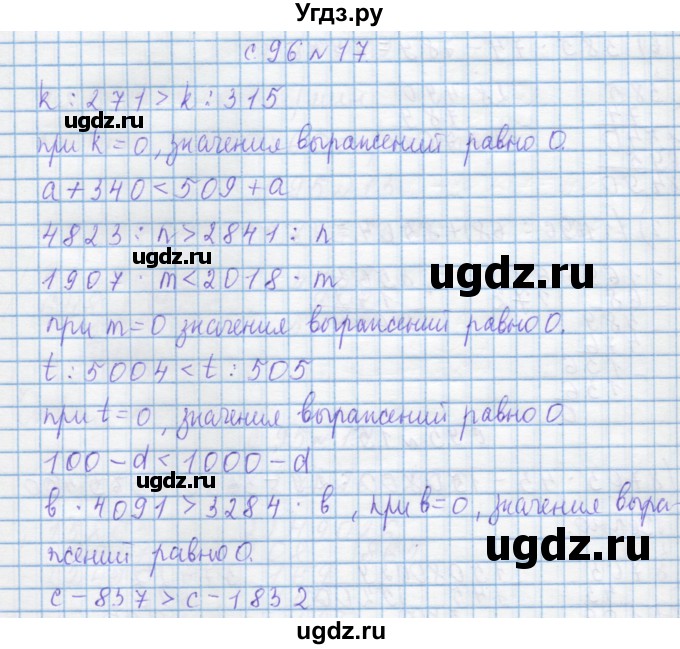 Угдз.ру
с. 96 № 17
k : 271 > k : 315
ugdz.ru
при k = 0, значения выражений равно 0.
a + 340 < 509 + a
4823 : n > 2841 : n
ugdz.ru
ugdz.ru
1907 · m < 2018 · m
при m = 0 значения выражений равно 0.
t : 5004 < t : 505
при t = 0, значения выражений равно 0
100 - d < 1000 - d
ugdz.ru
в · 4091 > 3284 · в, при в = 0, значения выра-
жений равно 0.
ugdz.ru
с - 857 > с - 1832
ugdz.ru